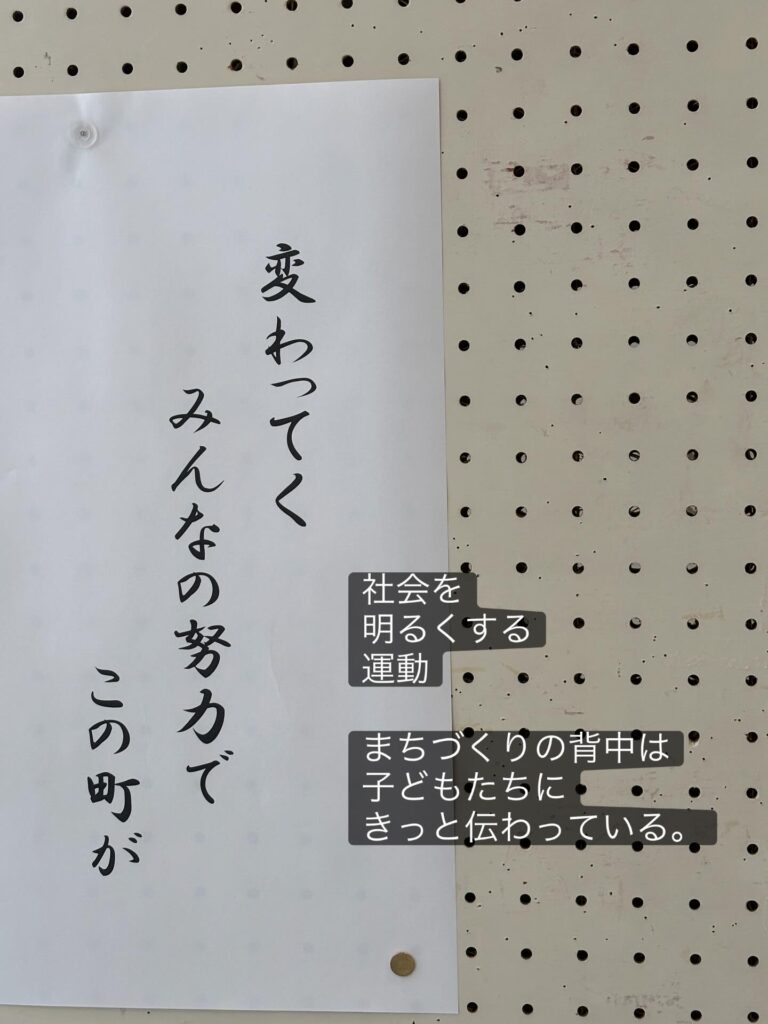 変わってく
みんなの努力で
この町が
社会を
明るくする
運動
まちづくりの背中は
子どもたちに
きっと伝わっている。